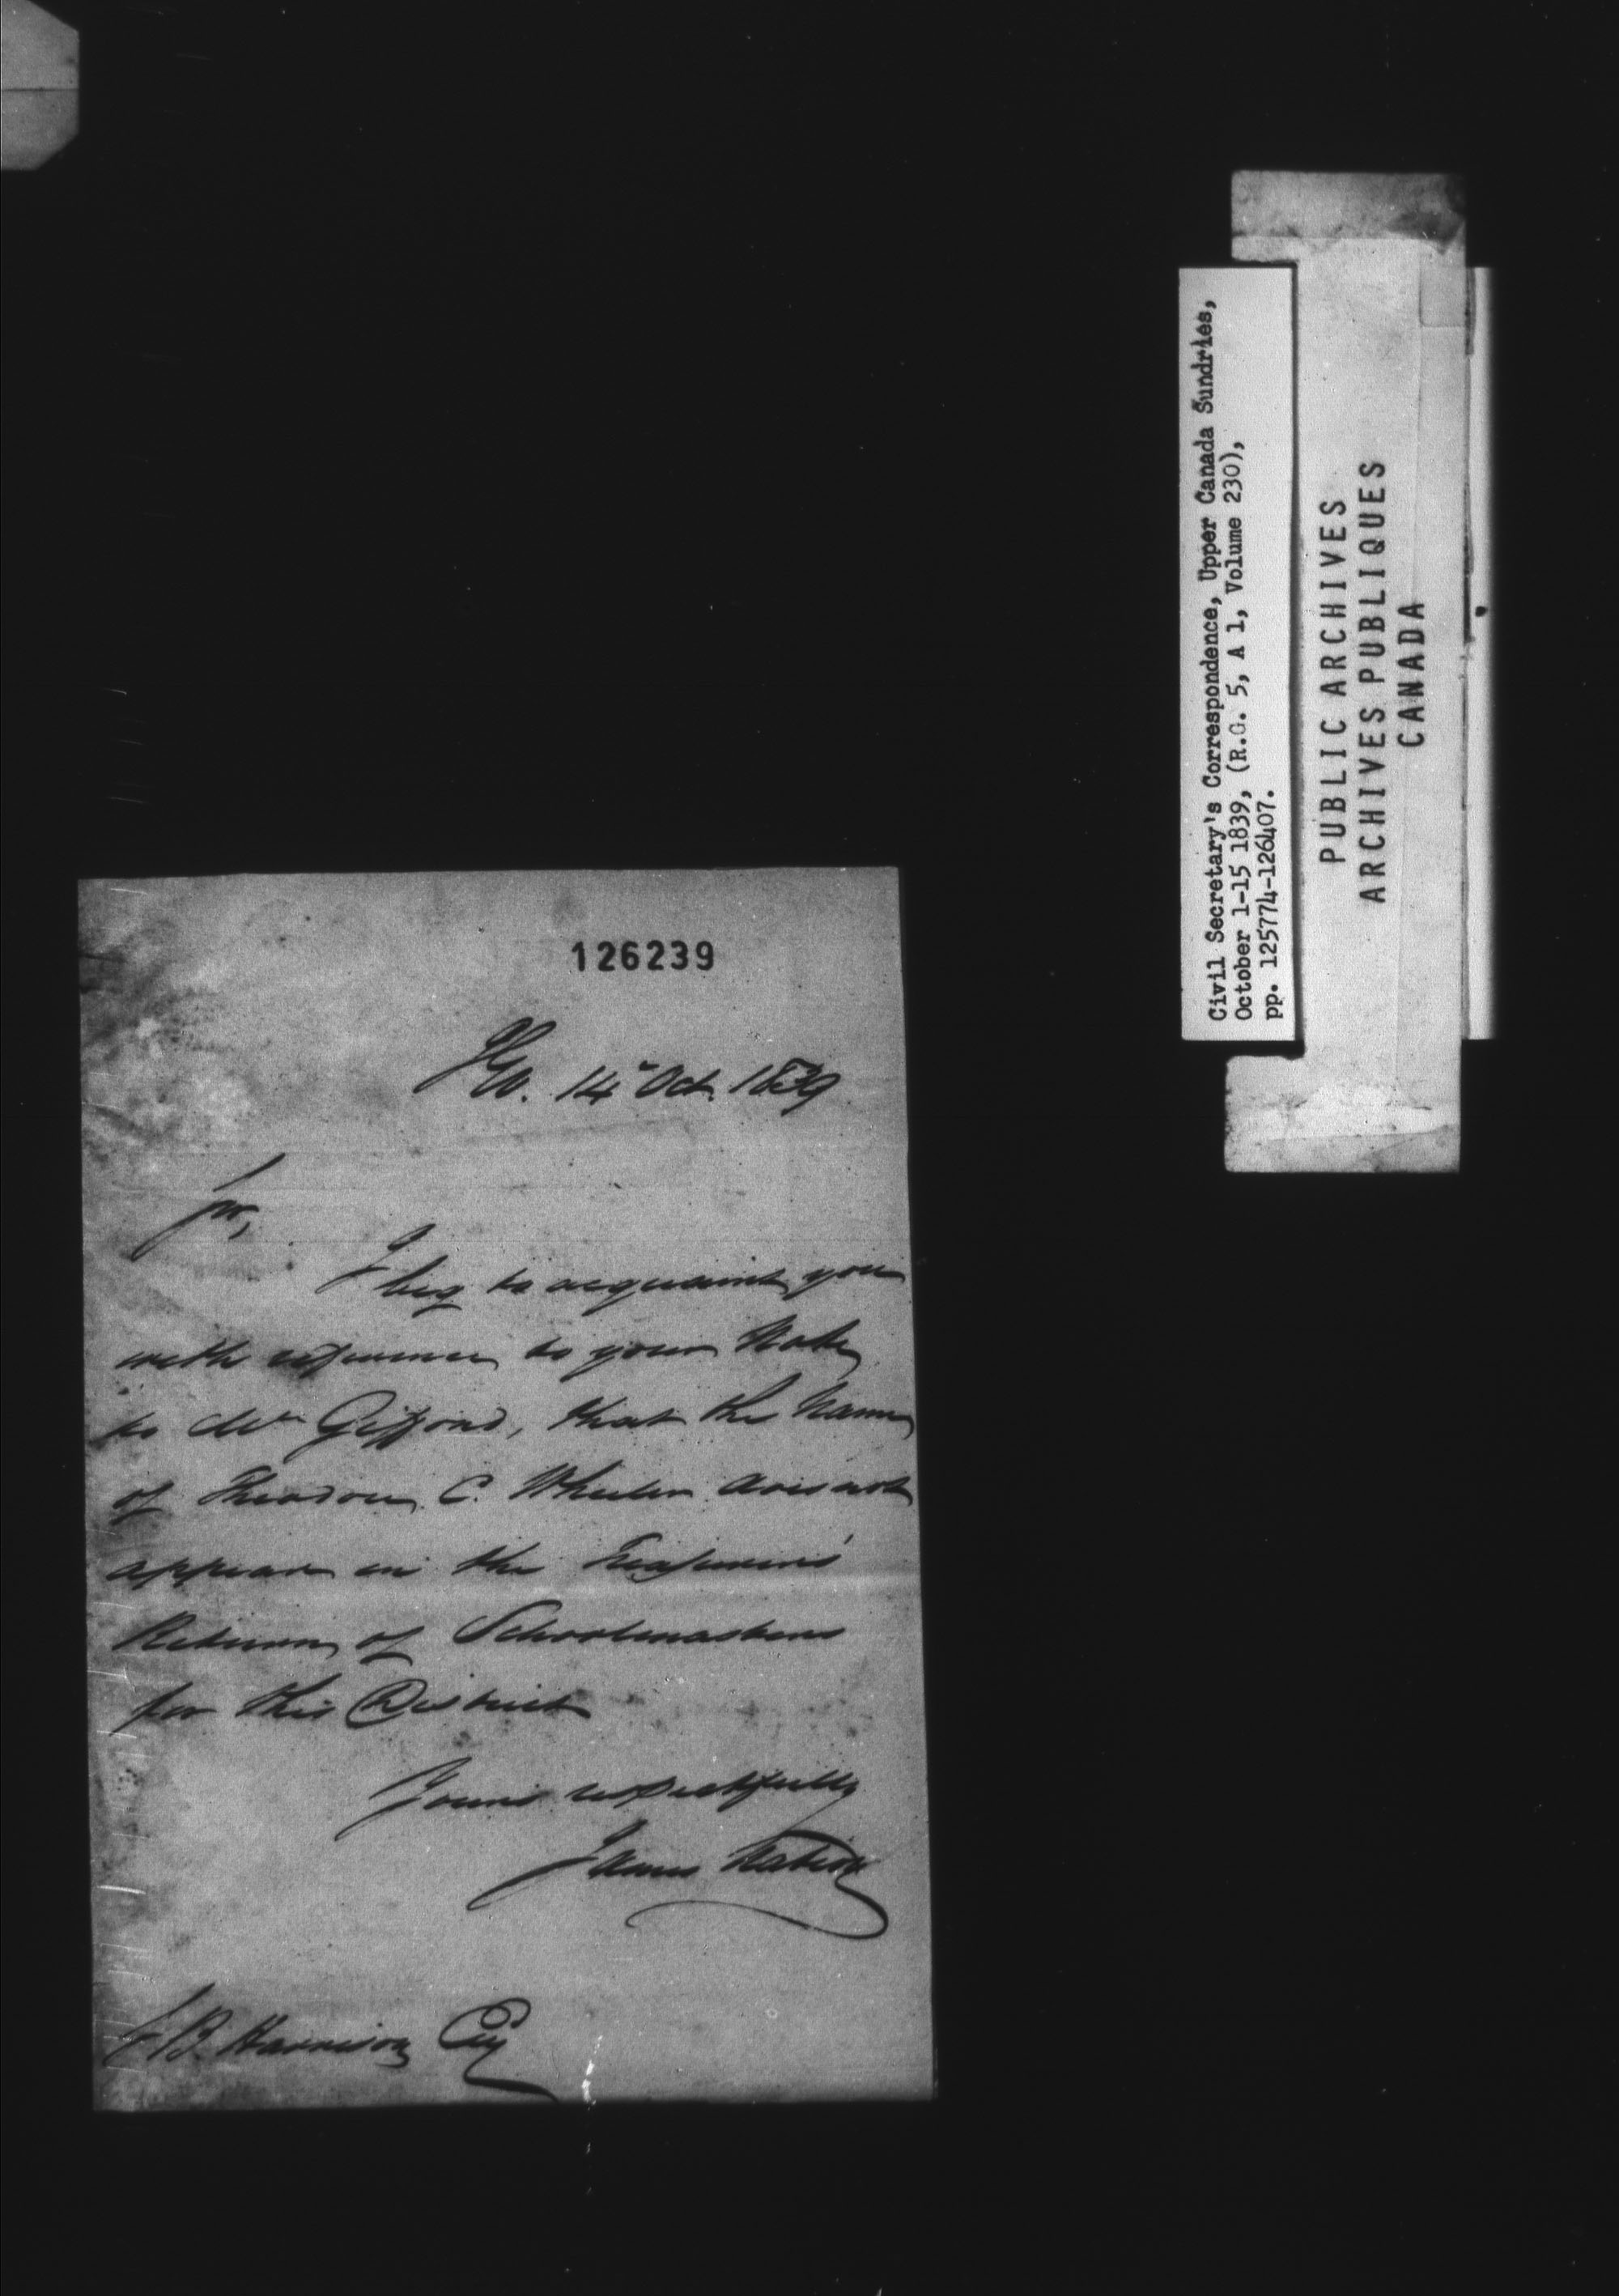 126239
I.G.O. 14th Oct. 1839
Sir,
I beg to acquaint you
with reference to your Note
to Mr. Gifford, that the Name
of Theodore C. Wheeler does not
appear in the Treasurers'
Return of Schoolmasters
for this District
Yours respectfully
James Nation
S. B. Harrison Esq
Civil Secretary's Correspondence, Upper Canada Sundries,
October 1-15 1839, (R.G. 5, A 1, Volume 230),
pp. 125774-126407.
PUBLIC ARCHIVES
ARCHIVES PUBLIQUES
CANADA